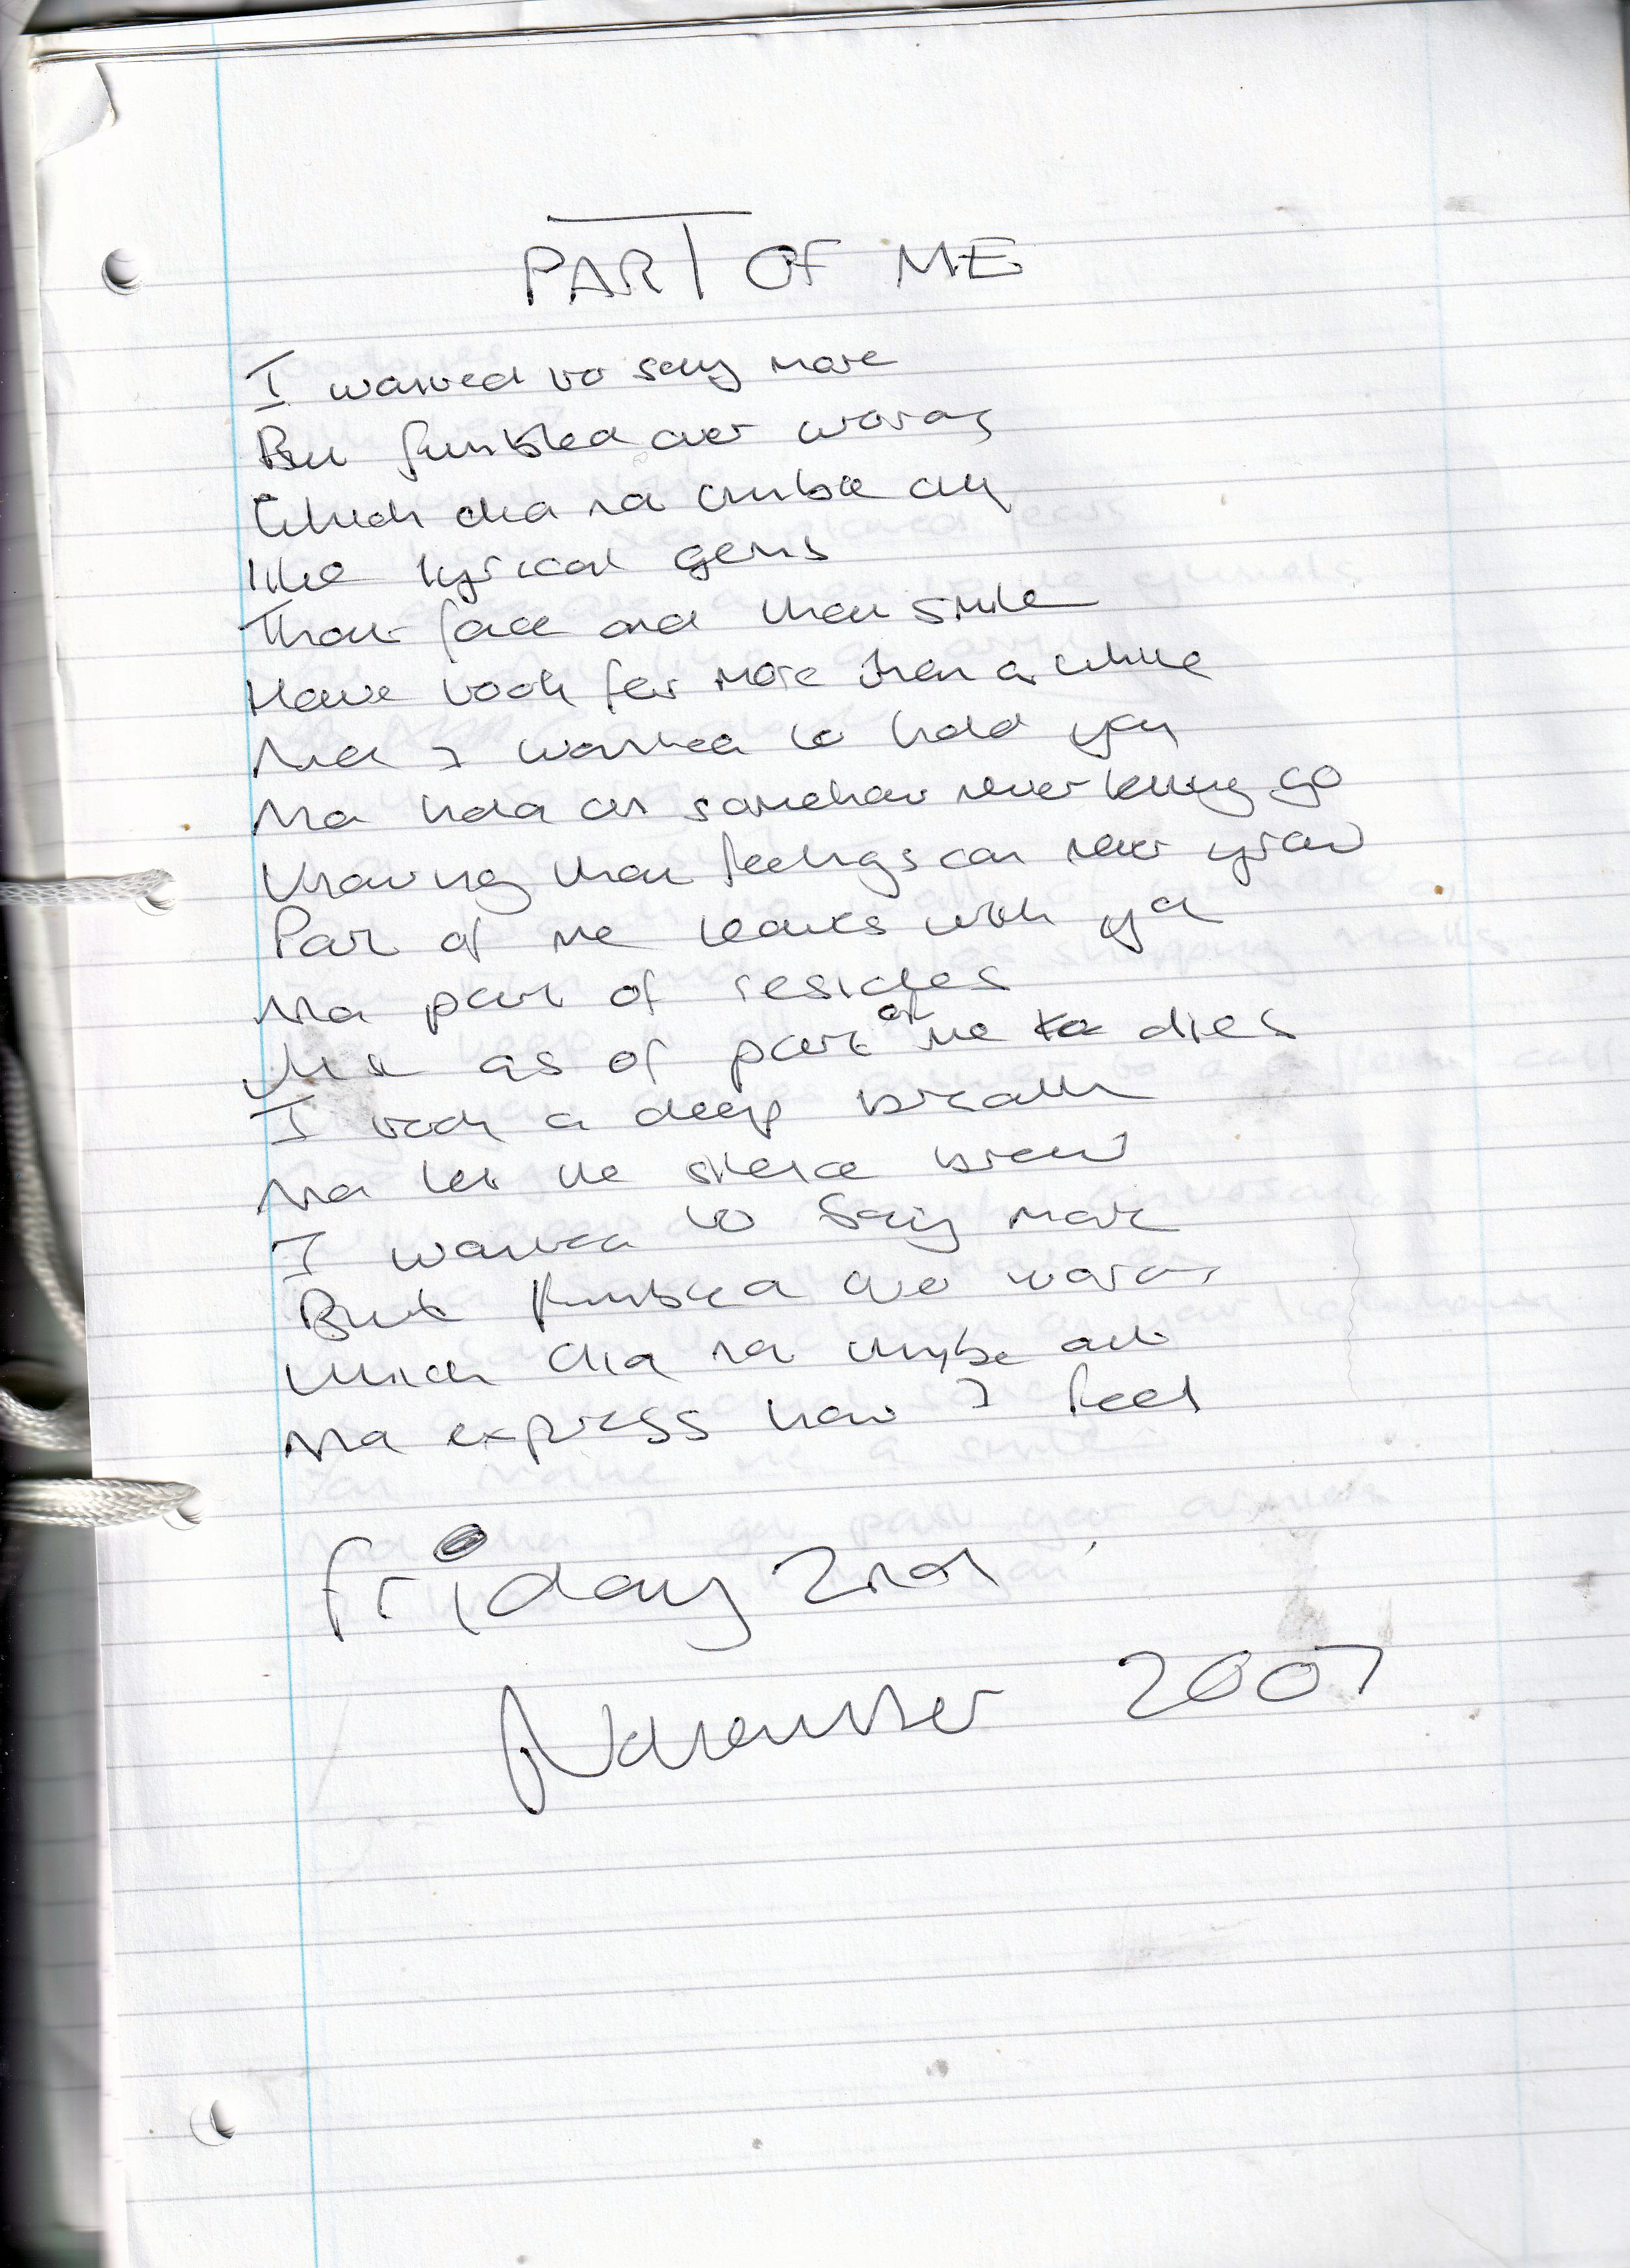 PART OF ME
I wanted to say more
But fumbled over words
Which did not tumble out
like lyrical gems
That face and that smile
Have took far more than a while
And I wanted to hold you
And hold on somehow never letting go
Knowing that feelings can never grow
Part of me leaves with you
And part of resides
Just as of part of me dies
I took a deep breath
And let the silence brew
I wanted to say more
But fumbled over words
Which did not tumble out
And express how I feel
Friday 2nd
November 2007